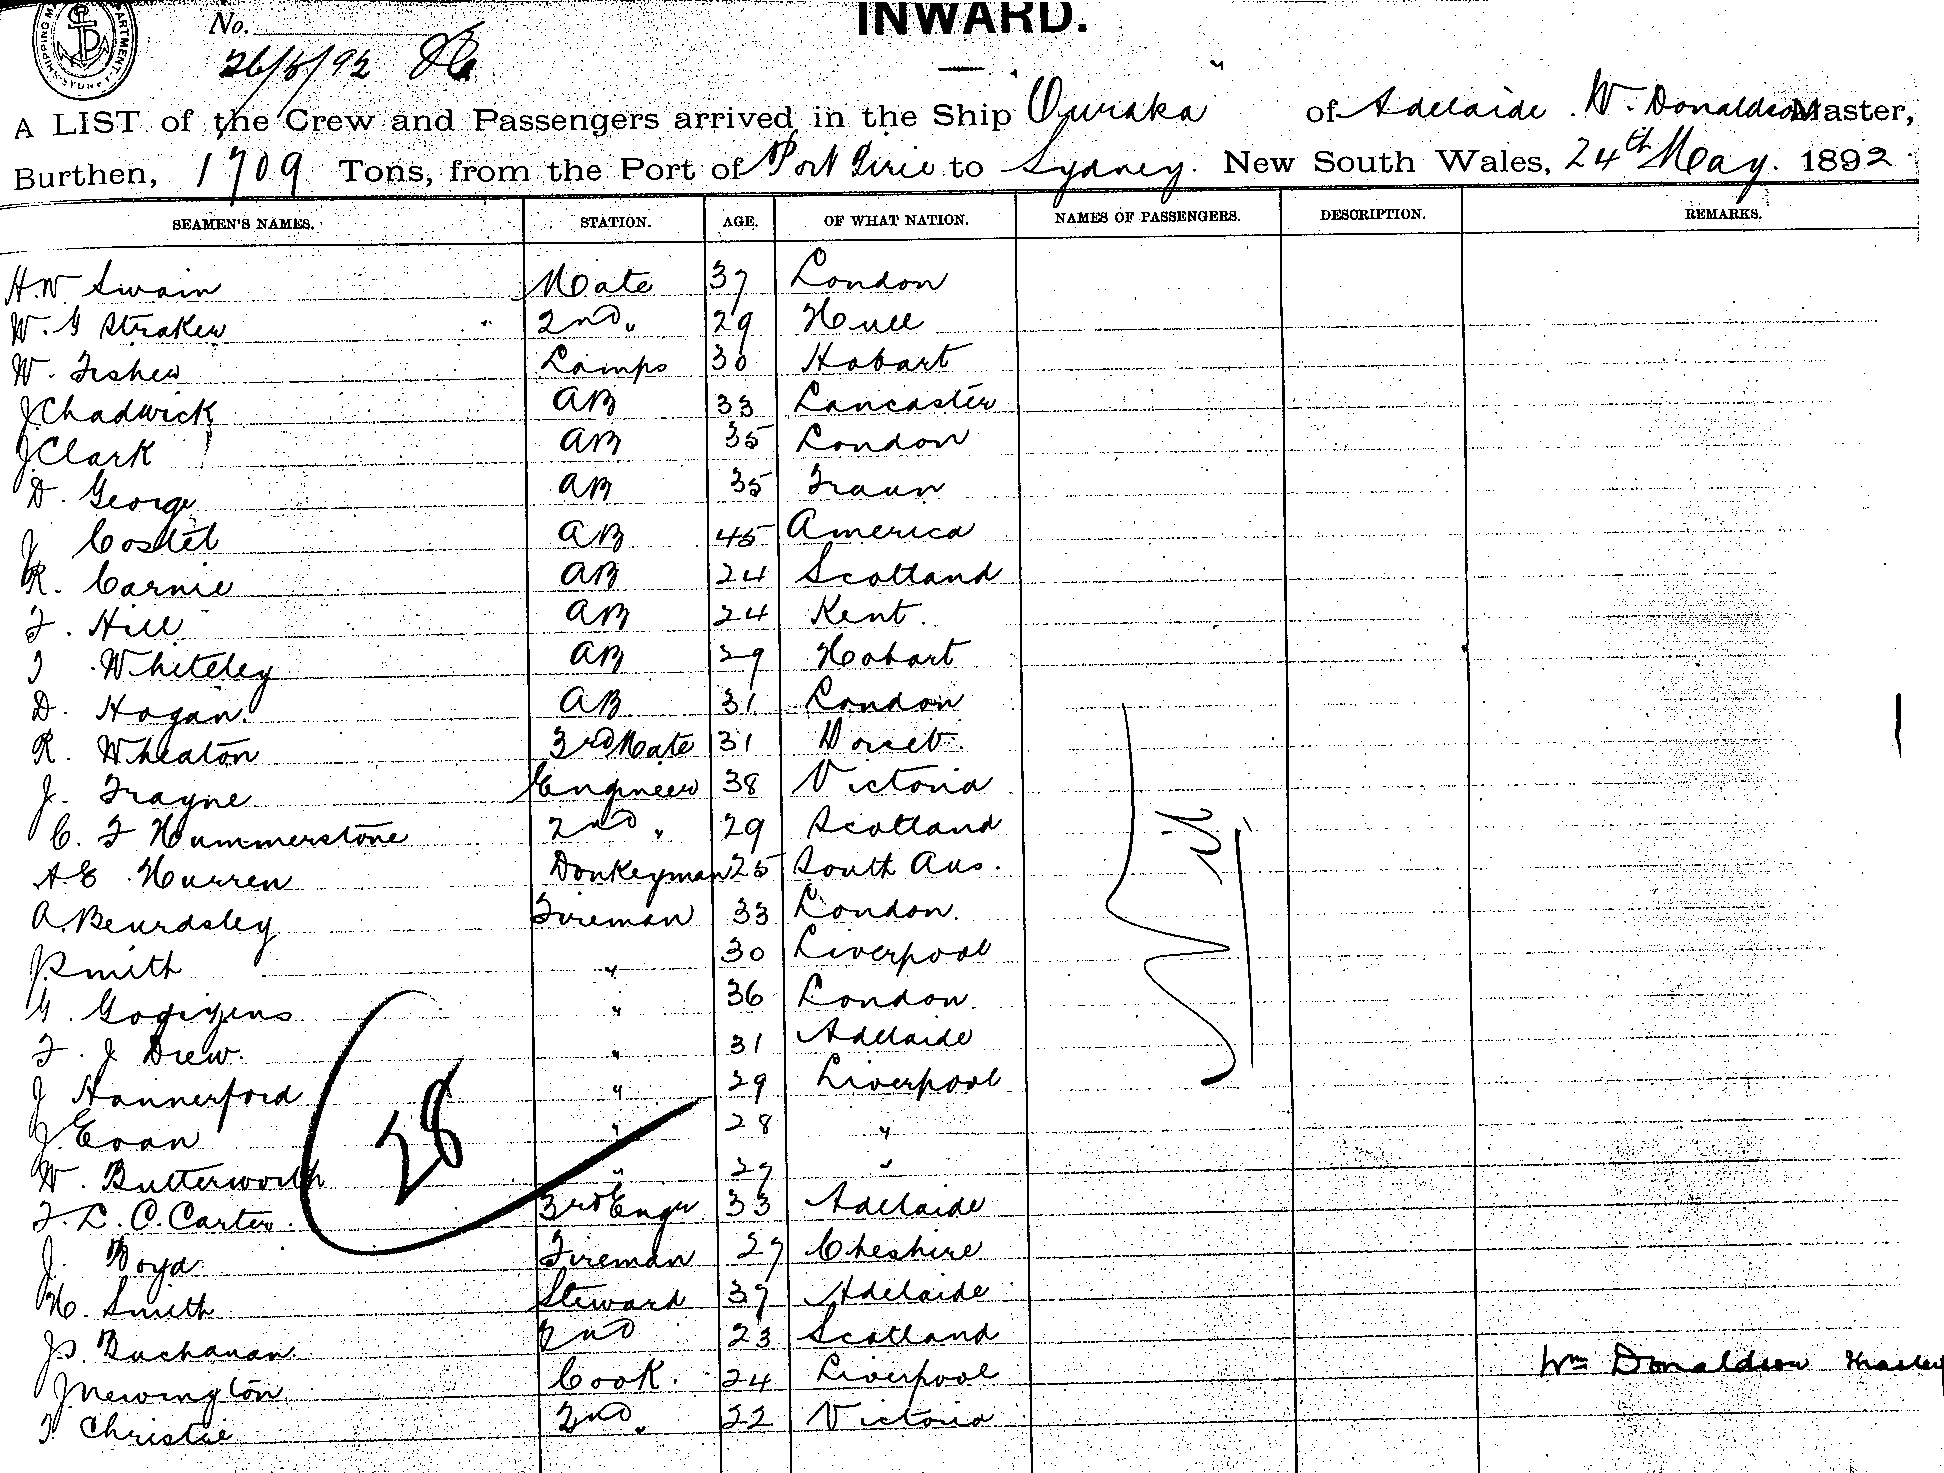 INWARD.
No.
26/5/92
A LIST of the Crew and Passengers arrived in the Ship Ouraka of Adelaide W. Donaldson Master,
Burthen, 1709 Tons, from the Port of Port Pirie to Sydney. New South Wales, 24th May. 1892
SEAMEN'S NAMES. STATION. AGE. OF WHAT NATION. NAMES OF PASSENGERS. DESCRIPTION. REMARKS.
H.W Swain Mate 37 London
W. G Straker 2nd " 29 Hull
W. Fisher Lamps 30 Hobart
J Chadwick AB 33 Lancaster
J. Clark AB 35 London
D. George AB 35 
J Costet AB 45 America
R. Carnie AB 24 Scotland
F. Hill AB 24 Kent.
T Whiteley AB 29 Hobart
D. Hogan. AB 31 London
R. Wheaton 3rd Mate 31 Dorset.
J. Trayne Engineer 38 Victoria
C. F Hummerstone 2nd " 29 Scotland
A.E Hurren Donkeyman 25 South Aus.
A. Beurdsley Fireman 33 London.
J. Smith " 30 Liverpool
G. " 36 London
F. J Drew. " 31 Adelaide
J Hannerford " 29 Liverpool
J. Evan " 28 "
W. Butterworth " 27 "
F. L. C. Carter. 3rd Engr 33 Adelaide
J. Boyd Fireman 27 Cheshire
H. Smith Steward 37 Adelaide
J.D. Buchanan 2nd 23 Scotland
J Newington Cook. 24 Liverpool
T Christie 2nd " 22 Victoria
Nil
28
Wm Donaldson Master